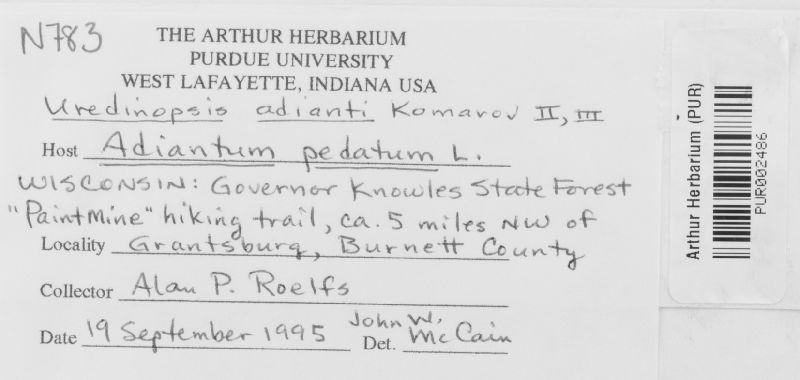 N783
THE ARTHUR HERBARIUM
PURDUE UNIVERSITY
WEST LAFAYETTE, INDIANA USA
Uredinopsis adianti Komarov II, III
Host Adiantum pedatum L.
WISCONSIN: Governor Knowles State Forest
"Paintmine" hiking trail, ca. 5 miles NW of
Locality Grantsburg, Burnett County
Collector Alan P. Roelfs
Date 19 September 1995 Det. John W. McCain
Arthur Herbarium (PUR)
PUR002486